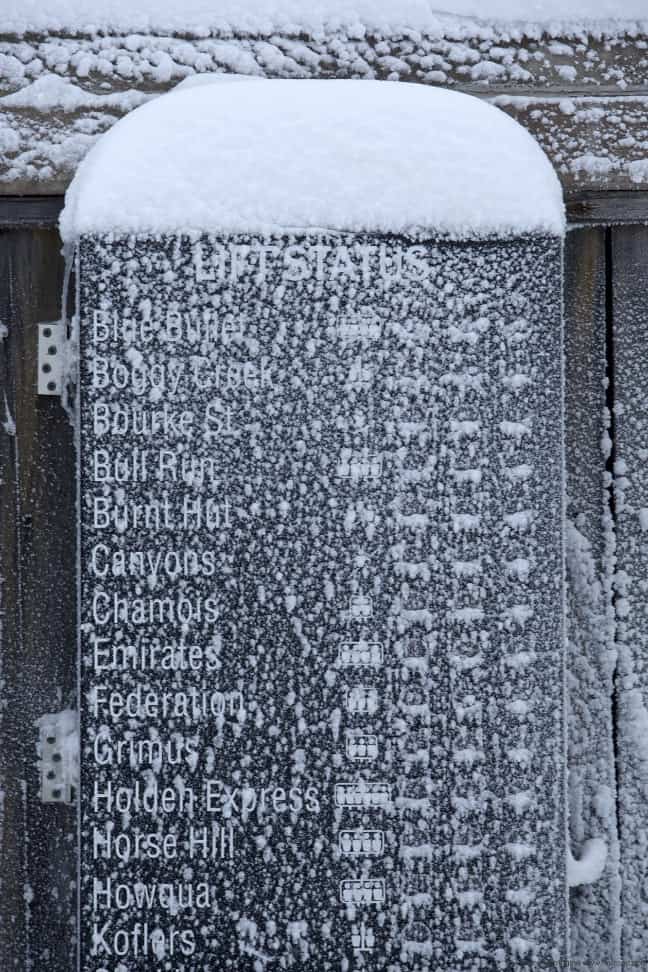 LIFT STATUS
Blue Bullet
Boggy Creek
Bourke St
Bull Run
Burnt Hut
Canyons
Chamois
Emirates
Federation
Grimus
Holden Express
Horse Hill
Howqua
Koflers